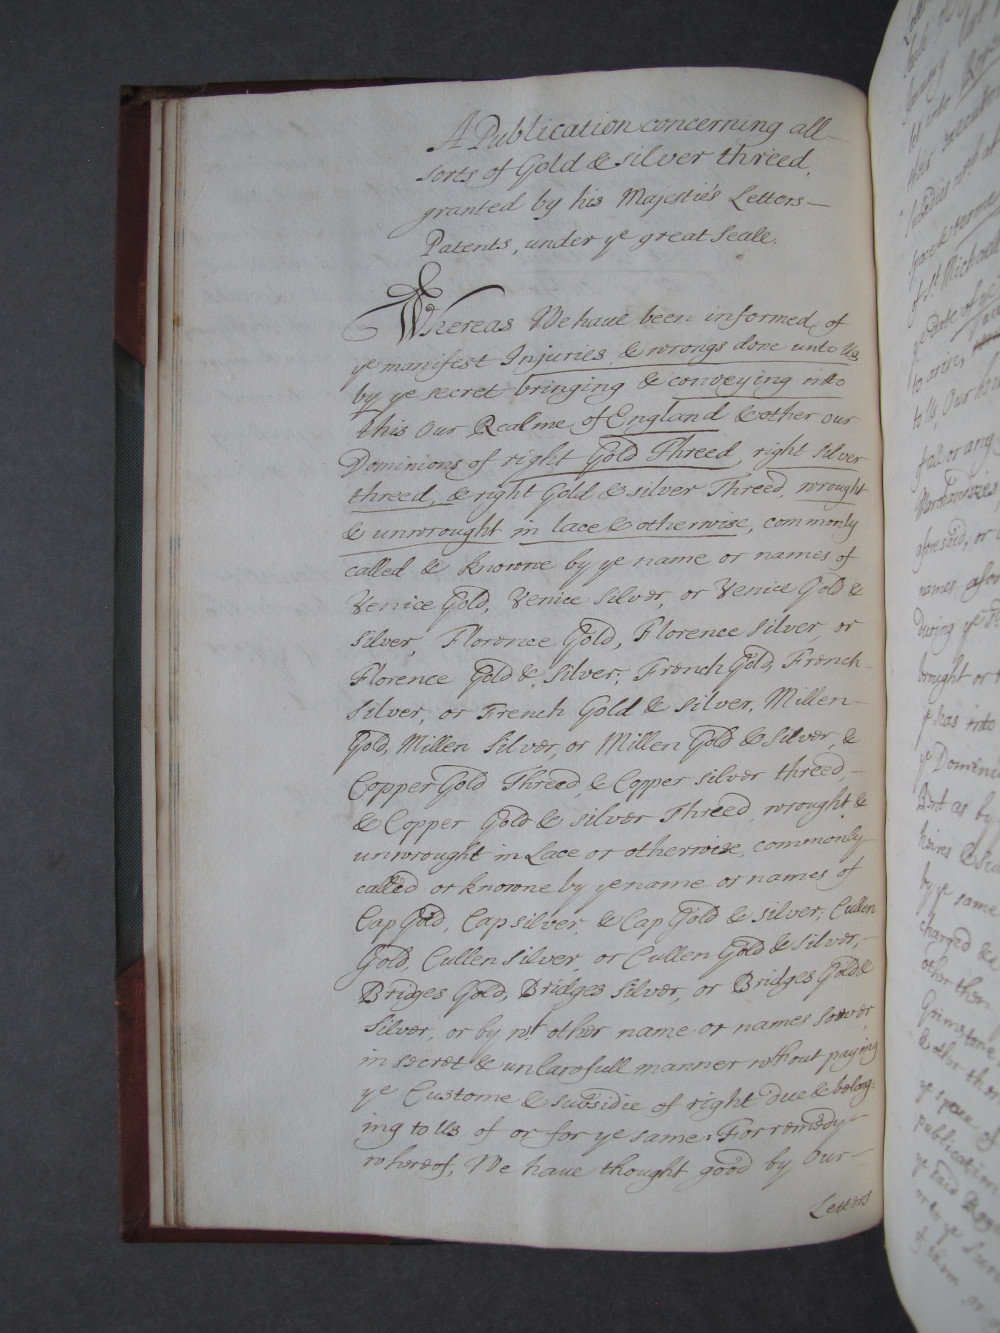 A Publication concerning all
sorts of Gold & silver threed,
granted by his Majestie's Letters
Patents, under ye great Seale.
Whereas We have been informed of
ye manifest Injuries & wrongs done unto Us
by ye secret bringing & conveying into
this Our Realme of England & other our
Dominions of right Gold Threed, right silver
threed, & right Gold & silver Threed, wrought
& unwrought in lace & otherwise, commonly
called & knowne by ye name or names of
Venice Gold, Venice Silver, or Venice Gold &
Silver, Florence Gold, Florence Silver, or
Florence Gold & Silver; French Gold, French
Silver, or French Gold & Silver, Millen
Gold, Millen Silver, or Millen Gold & Silver, &
Copper Gold Threed, & Copper silver threed,
& Copper Gold & silver Threed, wrought &
unwrought in Lace or otherwise, commonly
called or knowne by ye name or names of
Cap Gold, Cap silver, & Cap Gold & silver; Cullen
Gold, Cullen silver, or Cullen Gold & Silver,
Bridges Gold, Bridges Silver, or Bridges Gold &
Silver, or by wt other name or names soever
in secret & unlawfull manner wthout paying
ye Custome & subsidie of right due & belong=
ing to Us of or for ye same: For remedy
whereof, We have thought good by Our
Letters